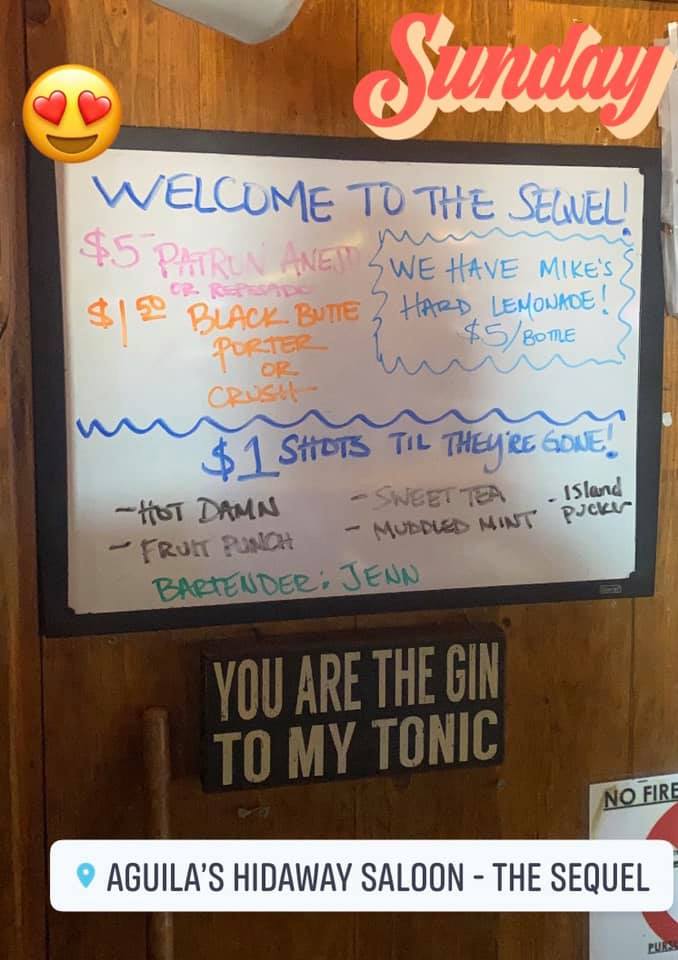 Sunday
WELCOME TO THE SEQUEL!
$5- PATRON ANEJO
OR REPOSADO
$1 50 BLACK BUTTE
PORTER
OR
CRUSH
WE HAVE MIKE'S
HARD LEMONADE!
$5/BOTTLE
$1 SHOTS TIL THEY'RE GONE!
- HOT DAMN
- FRUIT PUNCH
- SWEET TEA
- MUDDLED MINT
- ISland
PUCKER
BARTENDER: JENN
YOU ARE THE GIN
TO MY TONIC
NO FIRE
AGUILA'S HIDAWAY SALOON - THE SEQUEL
PURS